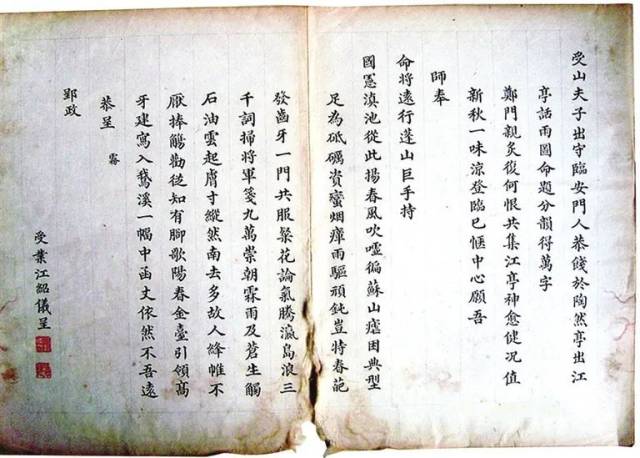 受山夫子出守臨安門人恭餞於陶然亭出江
亭話雨圖命題分韻得萬字
鄭門親炙復何恨共集江亭神愈健況值
新秋一味涼登臨已愜中心願吾
師奉
命將遠行蓬山巨手持
國憲滇池從此揚春風吹噓徧蘇山困典型
足為砥礪資蠻烟瘴雨驅頑鈍豈特春葩
發齒牙一門共服粲花論氣騰瀛島浪三
千詞掃將軍箋九萬崇朝霖雨及蒼生觸
石油雲起膚寸縱然南去多故人絳帷不
厭捧觴勸從知有腳歌陽春金臺引領髙
牙建寫入鵞溪一幅中函丈依然不吾遠
恭呈
郢政
受業江紹儀呈